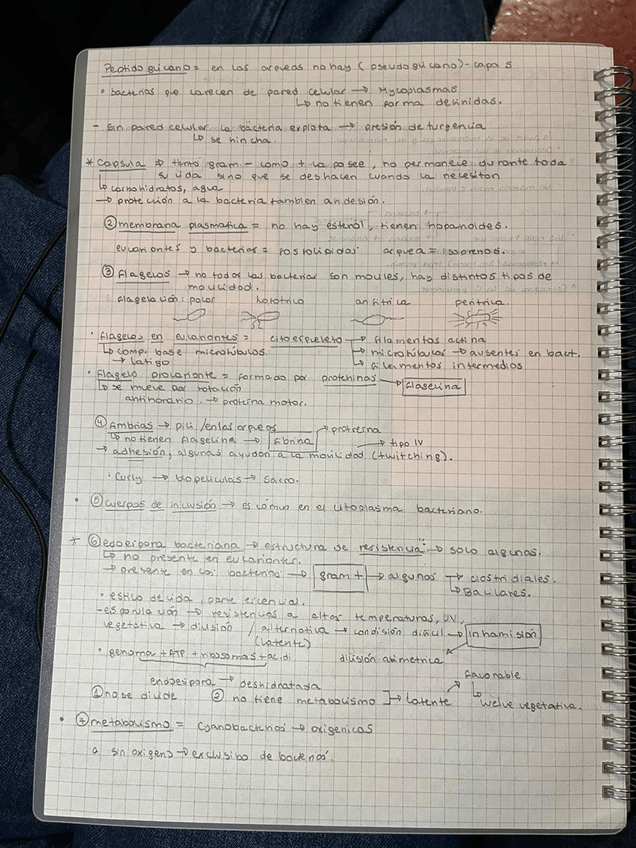 Peptidoglicano = en las arqueas no hay (pseudoglicano) - capa S
• bacterias que carecen de pared celular → Mycoplasmas
↳ no tienen forma definidas.
- Sin pared celular la bacteria explota → presión de turgencia
↳ se hincha.
* Capsula ⇒ tanto gram - como + la posee, no permanece durante toda
su vida sino que se deshacen cuando la necesitan
↳ carbohidratos, agua
→ protección a la bacteria tambien andesión.
② membrana plasmatica = no hay esterol, tienen hopanoides.
eucariontes y bacterias = fosfolipidos arquea = isoprenos.
③ Flagelos → no todos las bacterias son moviles, hay distintos tipos de
movilidad.
flagelación: polar lofotrico anfitrica peritrica.
• flagelos en eucariontes = citoesqueleto → filamentos actina
↳ comp. base microtúbulos ↳ microtúbulos → ausentes en bact.
→ latigo ↳ filamentos intermedios
• Flagelo procarionte = formado por protehinas → flagelina
↳ se mueve por rotación
antihorario → proteína motor.
④ fimbrias → pili / en las arqueas → proteína
↳ no tienen flagelina → fibrina → tipo IV
→ adhesión, algunas ayudan a la movilidad (twitching).
• Curly → biopeliculas → Sarro.
• ⑤ cuerpos de inclusión → es cómun en el citoplasma bacteriano.
* ⑥ edoespora bacteriana → estructura de resistencia → solo algunas.
↳ no presente en eucariontes.
→ presente en las bacterias → gram + → algunas → clostridiales.
↳ Bacilares.
• estilo de vida, parte escencial.
- esporulación → resistencias a altas temperaturas, UV,
vegetativa → division / alternativa → condisión dificil → inhamisión
(latente)
• Genoma + ATP + ribosomas + acidi división asimetrica
endoespora → deshidratada favorable
① no se divide ② no tiene metabolismo → latente ↳ vuelve vegetativa.
• ⑦ metabolismo = cyanobacterias → oxigenicas
a sin oxigeno → exclusibo de bacterias.